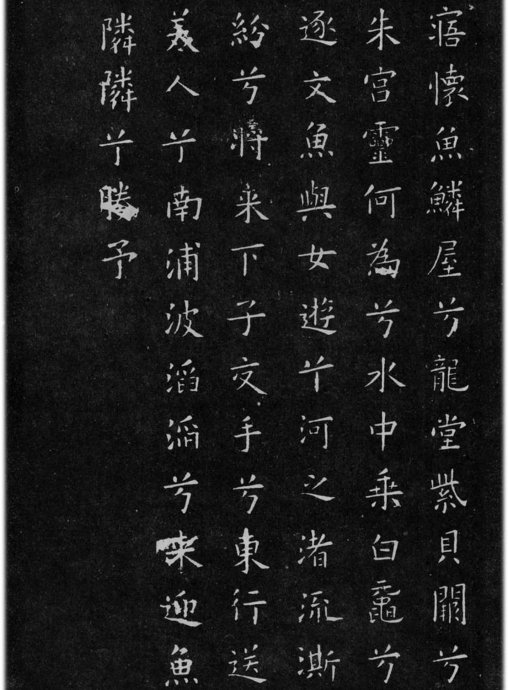 寤懷魚鱗屋兮龍堂紫貝闕兮
朱宮靈何為兮水中乗白黿兮
逐文魚與女遊兮河之渚流澌
紛兮將来下子交手兮東行送
美人兮南浦波滔滔兮来迎魚
隣隣兮媵予